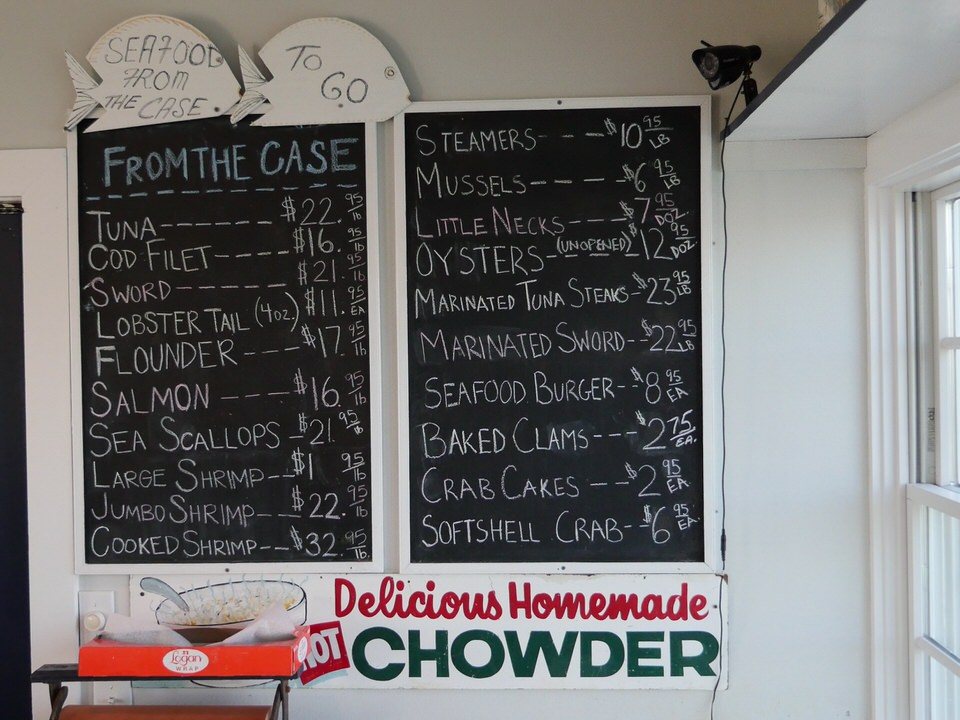 SEAFOOD
FROM
THE CASE
TO
GO
FROM THE CASE
TUNA------- $22.95 lb
COD FILET---- $16.95 lb
SWORD------- $21.95 lb
LOBSTER TAIL (4oz.) $11.95 EA
FLOUNDER---- $17.95 lb
SALMON ---- $16.95 lb
SEA SCALLOPS - $21.95 lb
LARGE SHRIMP-- $1 95 lb
JUMBO SHRIMP--- $22.95 lb
COOKED SHRIMP--- $32.95 lb.
STEAMERS--- $10 95 LB
MUSSELS----- $6 95 LB
LITTLE NECKS---- $7 95 DOZ
OYSTERS (UNOPENED)---- $12 95 DOZ.
MARINATED TUNA STEAKS- $23 95 LB
MARINATED SWORD-- $22 95 LB
SEAFOOD BURGER-- $8 95 EA
BAKED CLAMS--- $2 75 EA.
CRAB CAKES --- $2 95 EA
SOFTSHELL CRAB-- $6 95 EA.
Delicious Homemade
HOT CHOWDER
Logan
WRAP